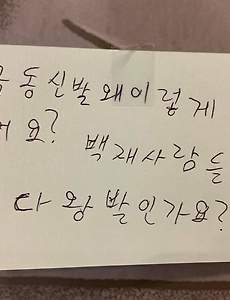 금동신발 왜이렇게
요? 백재사람들
다 왕발인가요?